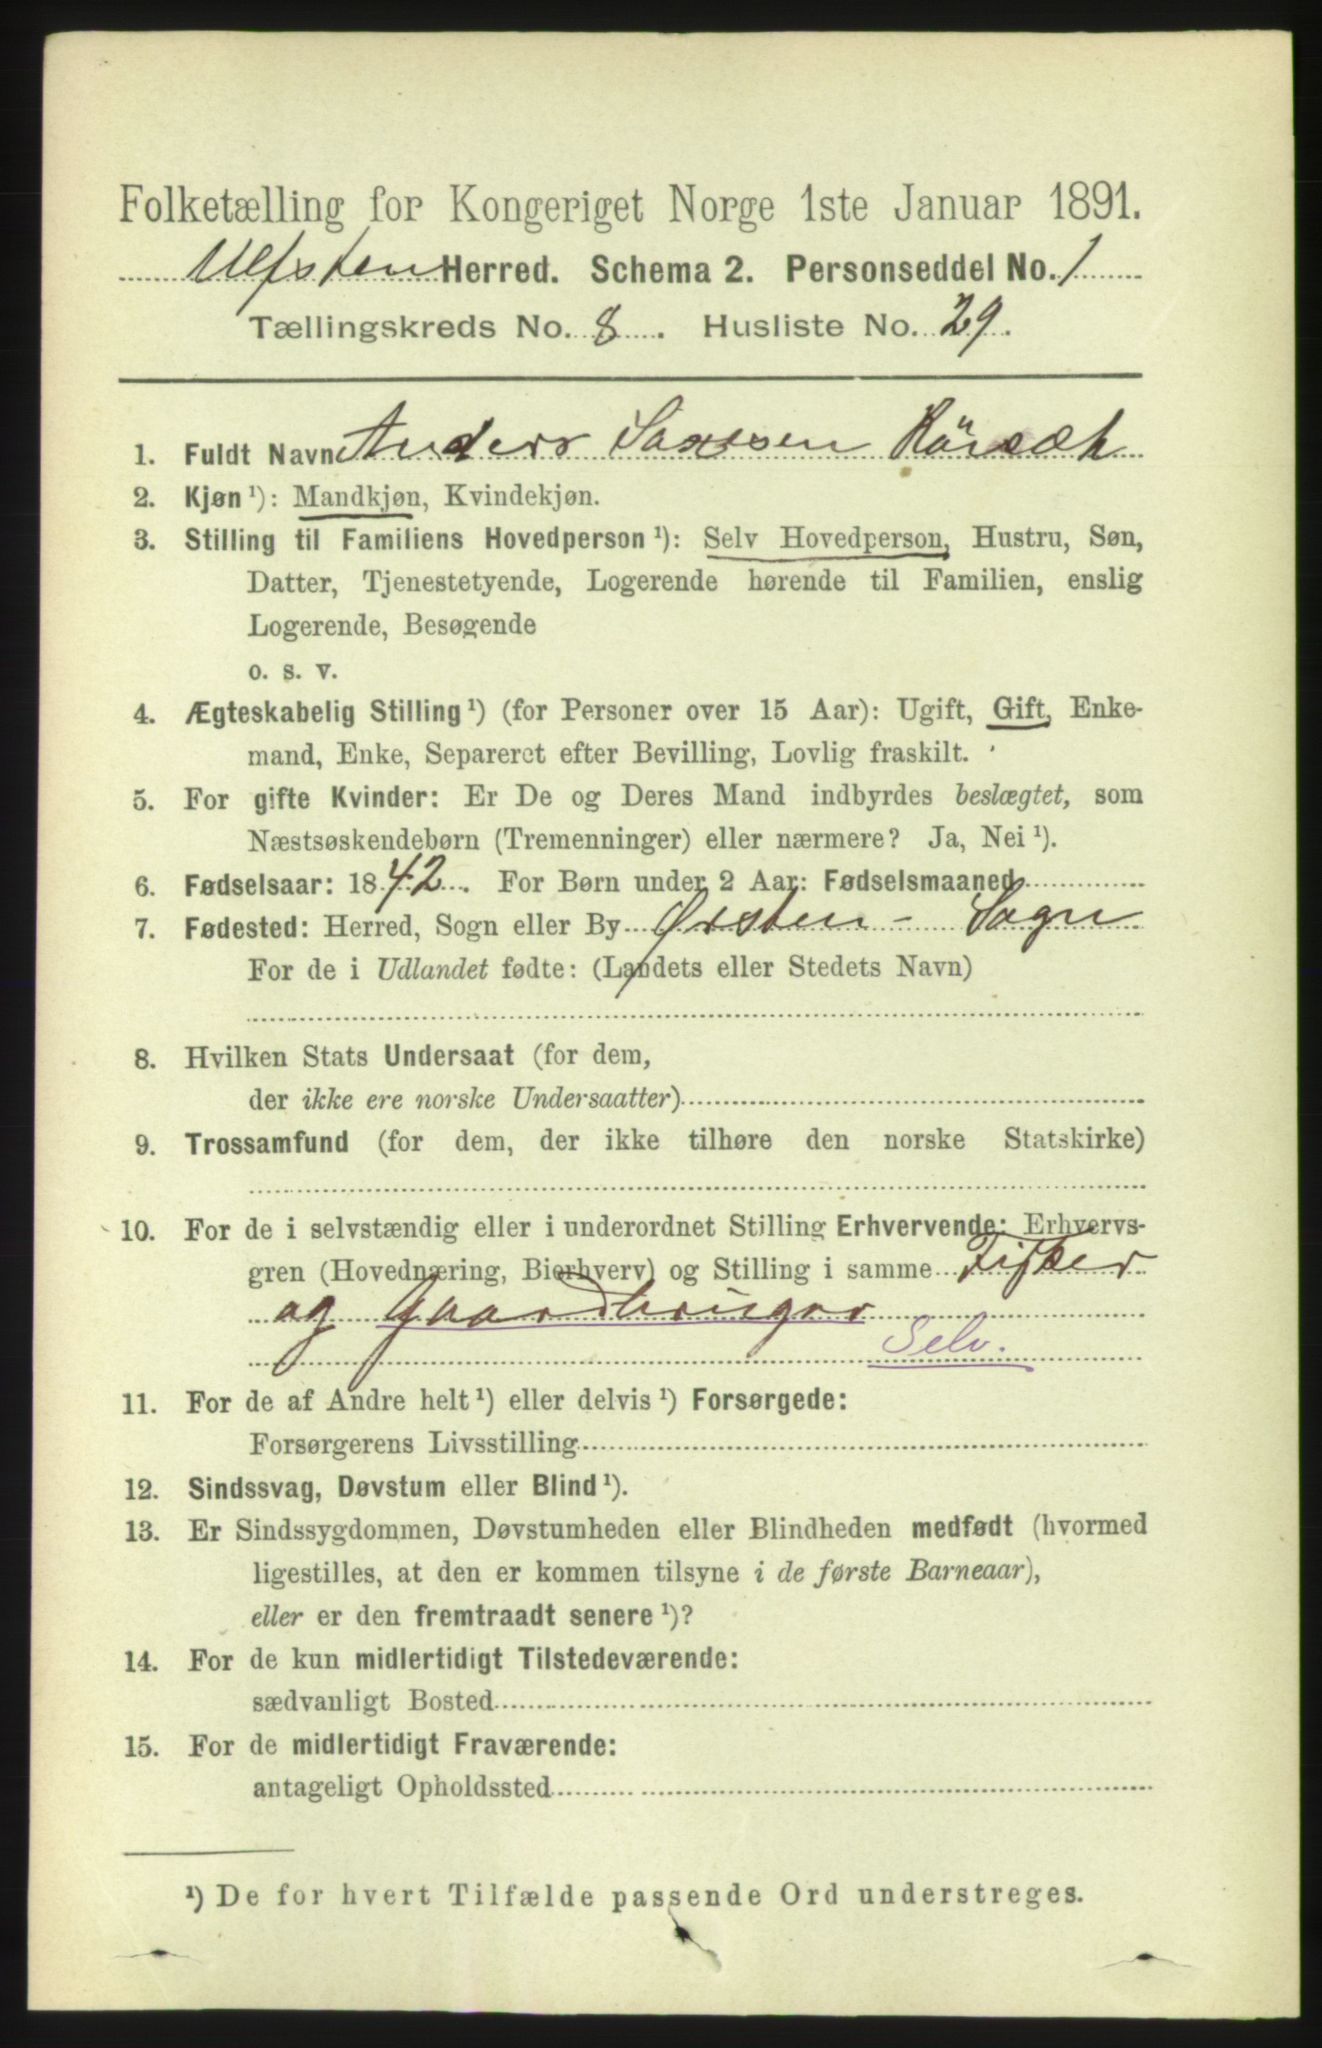 Folketælling for Kongeriget Norge 1ste Januar 1891.
Ulfsten Herred. Schema 2. Personseddel No. 1
Tællingskreds No. 8. Husliste No. 29.
1. Fuldt Navn Anders Saxesen Rörsæt
2. Kjøn ¹): Mandkjøn, Kvindekjøn.
3. Stilling til Familiens Hovedperson ¹): Selv Hovedperson, Hustru, Søn,
Datter, Tjenestetyende, Logerende hørende til Familien, enslig
Logerende, Besøgende
o. s. v.
4. Ægteskabelig Stilling ¹) (for Personer over 15 Aar): Ugift, Gift, Enke-
mand, Enke, Separeret efter Bevilling, Lovlig fraskilt.
5. For gifte Kvinder: Er De og Deres Mand indbyrdes beslægtet, som
Næstsøskendebørn (Tremenninger) eller nærmere? Ja, Nei ¹).
6. Fødselsaar: 1842. For Børn under 2 Aar: Fødselsmaaned
7. Fødested: Herred, Sogn eller By Ørsten - Sogn
For de i Udlandet fødte: (Landets eller Stedets Navn)
8. Hvilken Stats Undersaat (for dem,
der ikke ere norske Undersaatter)
9. Trossamfund (for dem, der ikke tilhøre den norske Statskirke)
10. For de i selvstændig eller i underordnet Stilling Erhvervende: Erhvervs-
gren (Hovednæring, Bierhverv) og Stilling i samme Fisker
og Gaardbruger
Selv.
11. For de af Andre helt ¹) eller delvis ¹) Forsørgede:
Forsørgerens Livsstilling
12. Sindssvag, Døvstum eller Blind ¹).
13. Er Sindssygdommen, Døvstumheden eller Blindheden medfødt (hvormed
ligestilles, at den er kommen tilsyne i de første Barneaar),
eller er den fremtraadt senere ¹)?
14. For de kun midlertidigt Tilstedeværende:
sædvanligt Bosted
15. For de midlertidigt Fraværende:
antageligt Opholdssted
¹) De for hvert Tilfælde passende Ord understreges.